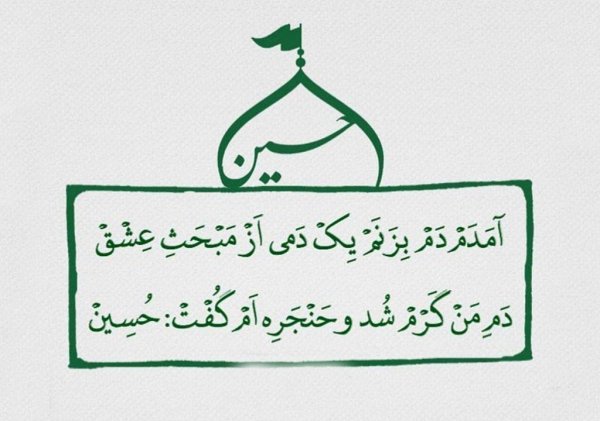 حسین
آمَدَمْ دَمْ بِزَنَمْ یِکْ دَمی اَزْ مَبْحَثِ عِشْقْ
دَمِ مَنْ گَرْمْ شُد و حَنْجَرِه اَمْ گُفْتْ: حُسِینْ